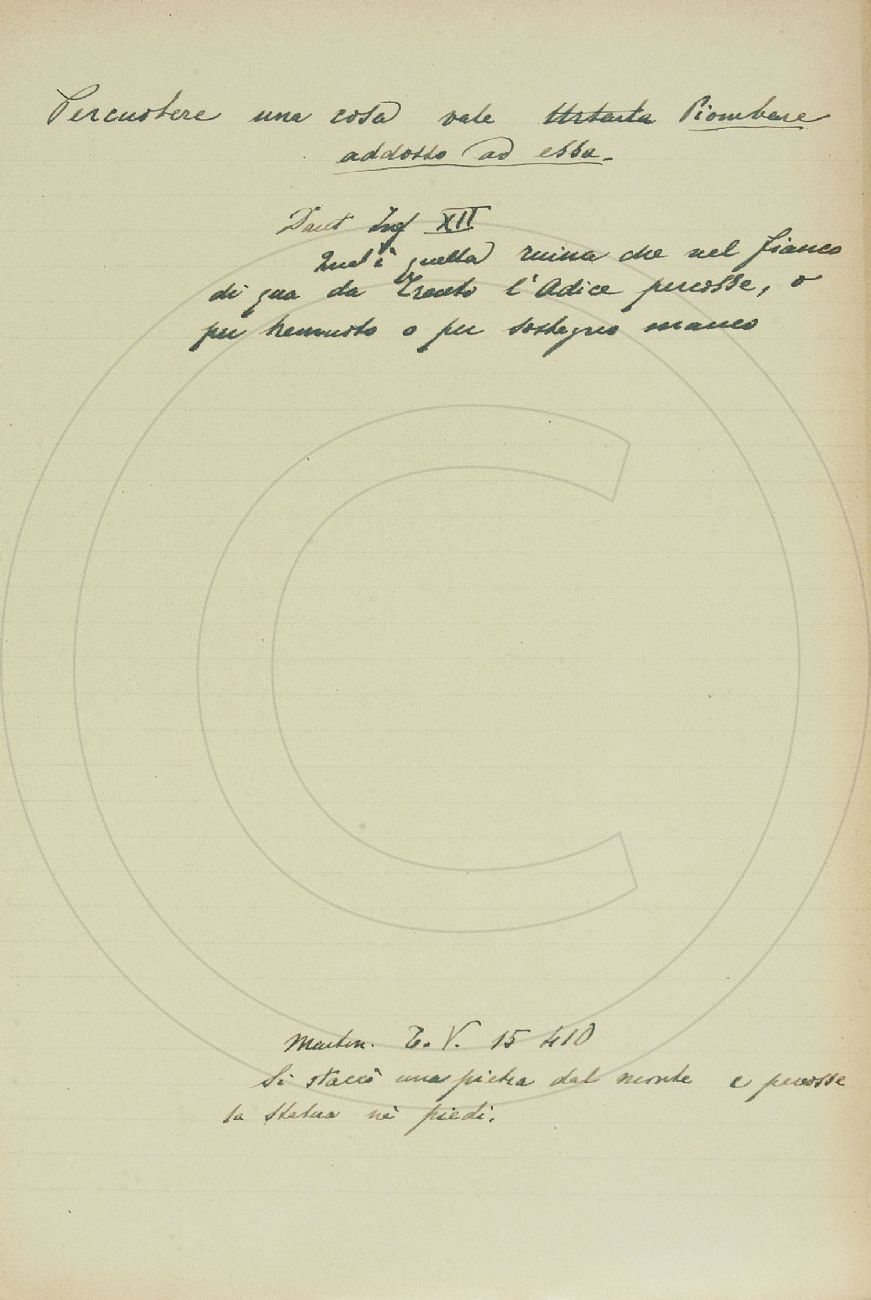 Percuotere una cosa vale Urtarla Piombare
addosso ad essa.
Dant Inf XII
Qual è quella ruina che nel fianco
di qua da Trento l'Adice percosse, o
per tremuoto o per sostegno manco
Martin. T. V. 15 410
Si staccò una pietra dal monte e percosse
la statua nè piedi.